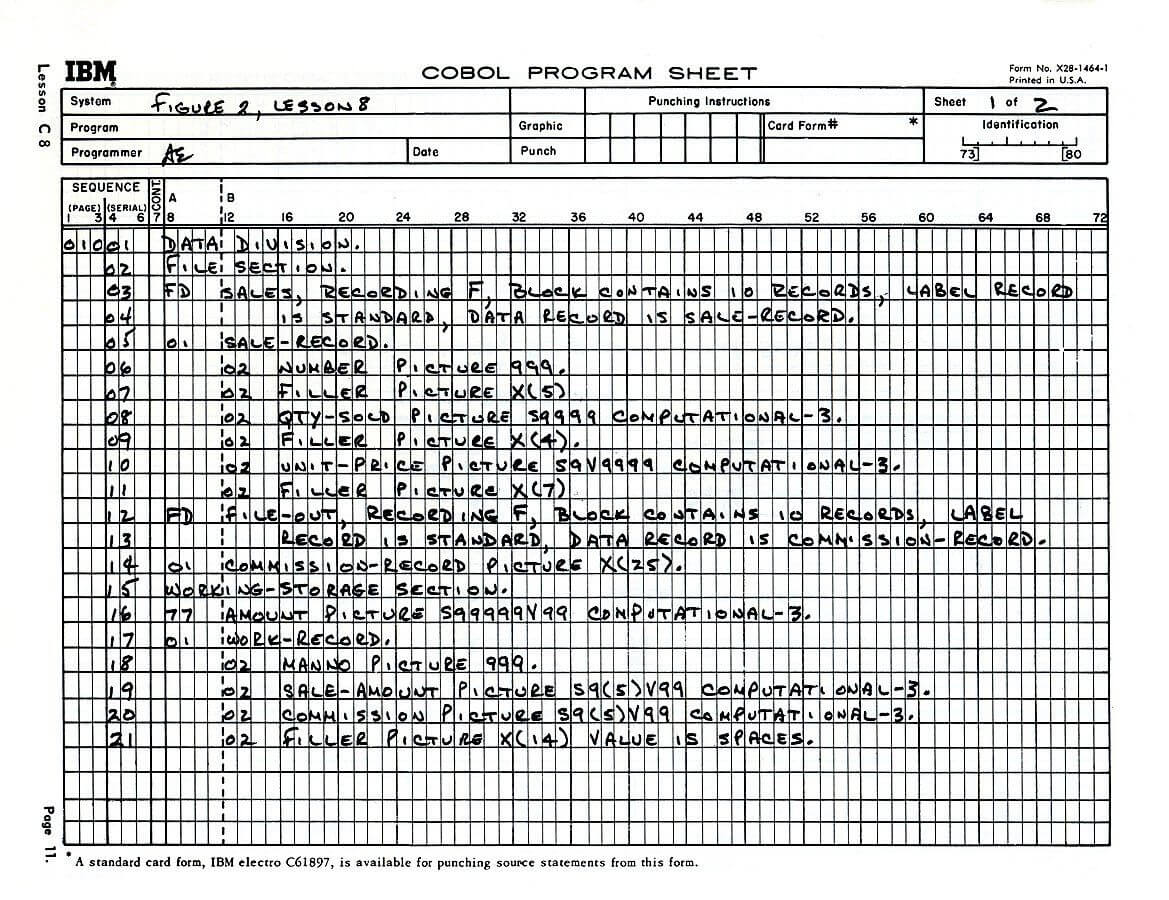 Lesson C8
IBM
COBOL PROGRAM SHEET
Form No. X28-1464-1
Printed in U.S.A.
System FIGURE 2, LESSON 8
Punching Instructions
Sheet 1 of 2
Program
Graphic
Card Form# *
Identification
Programmer AE
Date
Punch
73] [80
SEQUENCE CONT. A B
(PAGE) (SERIAL)
1 3 4 6 7 8 12 16 20 24 28 32 36 40 44 48 52 56 60 64 68 72
01001 DATA DIVISION.
02 FILE SECTION.
03 FD SALES, RECORDING F, BLOCK CONTAINS 10 RECORDS, LABEL RECORD
04 IS STANDARD, DATA RECORD IS SALE-RECORD.
05 01 SALE-RECORD.
06 02 NUMBER PICTURE 999.
07 02 FILLER PICTURE X(5)
08 02 QTY-SOLD PICTURE S9999 COMPUTATIONAL-3.
09 02 FILLER PICTURE X(4).
10 02 UNIT-PRICE PICTURE S9V9999 COMPUTATIONAL-3.
11 02 FILLER PICTURE X(7)
12 FD FILE-OUT, RECORDING F, BLOCK CONTAINS 10 RECORDS, LABEL
13 RECORD IS STANDARD, DATA RECORD IS COMMISSION-RECORD.
14 01 COMMISSION-RECORD PICTURE X(25).
15 WORKING-STORAGE SECTION.
16 77 AMOUNT PICTURE S99999V99 COMPUTATIONAL-3.
17 01 WORK-RECORD.
18 02 MANNO PICTURE 999.
19 02 SALE-AMOUNT PICTURE S9(5)V99 COMPUTATIONAL-3.
20 02 COMMISSION PICTURE S9(5)V99 COMPUTATIONAL-3.
21 02 FILLER PICTURE X(14) VALUE IS SPACES.
Page 11.
* A standard card form, IBM electro C61897, is available for punching source statements from this form.